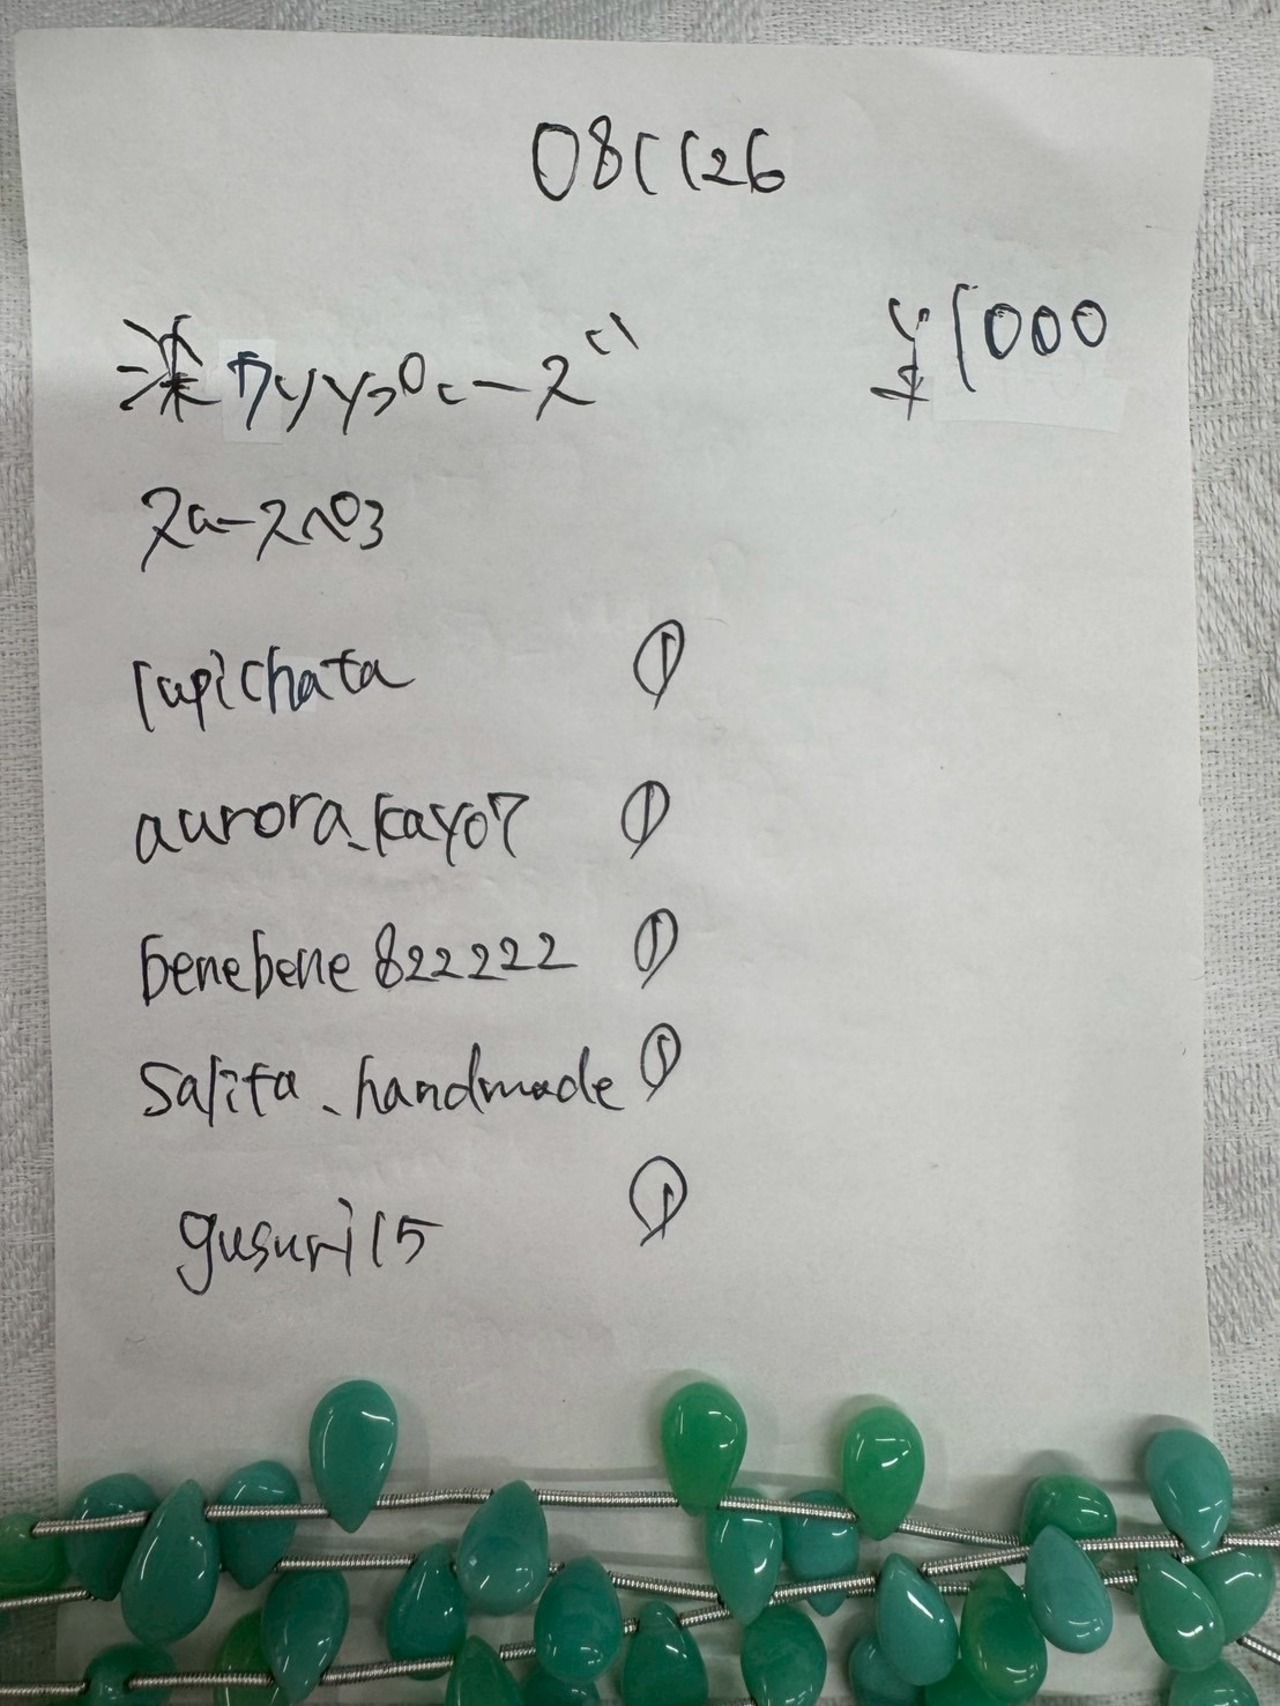 081126
染クリソプレーズ ¥1000
スムースペアロ
lapichata ①
aurora_kayo7 ①
benebene822222 ①
salita_handmade ①
gusuri15 ①